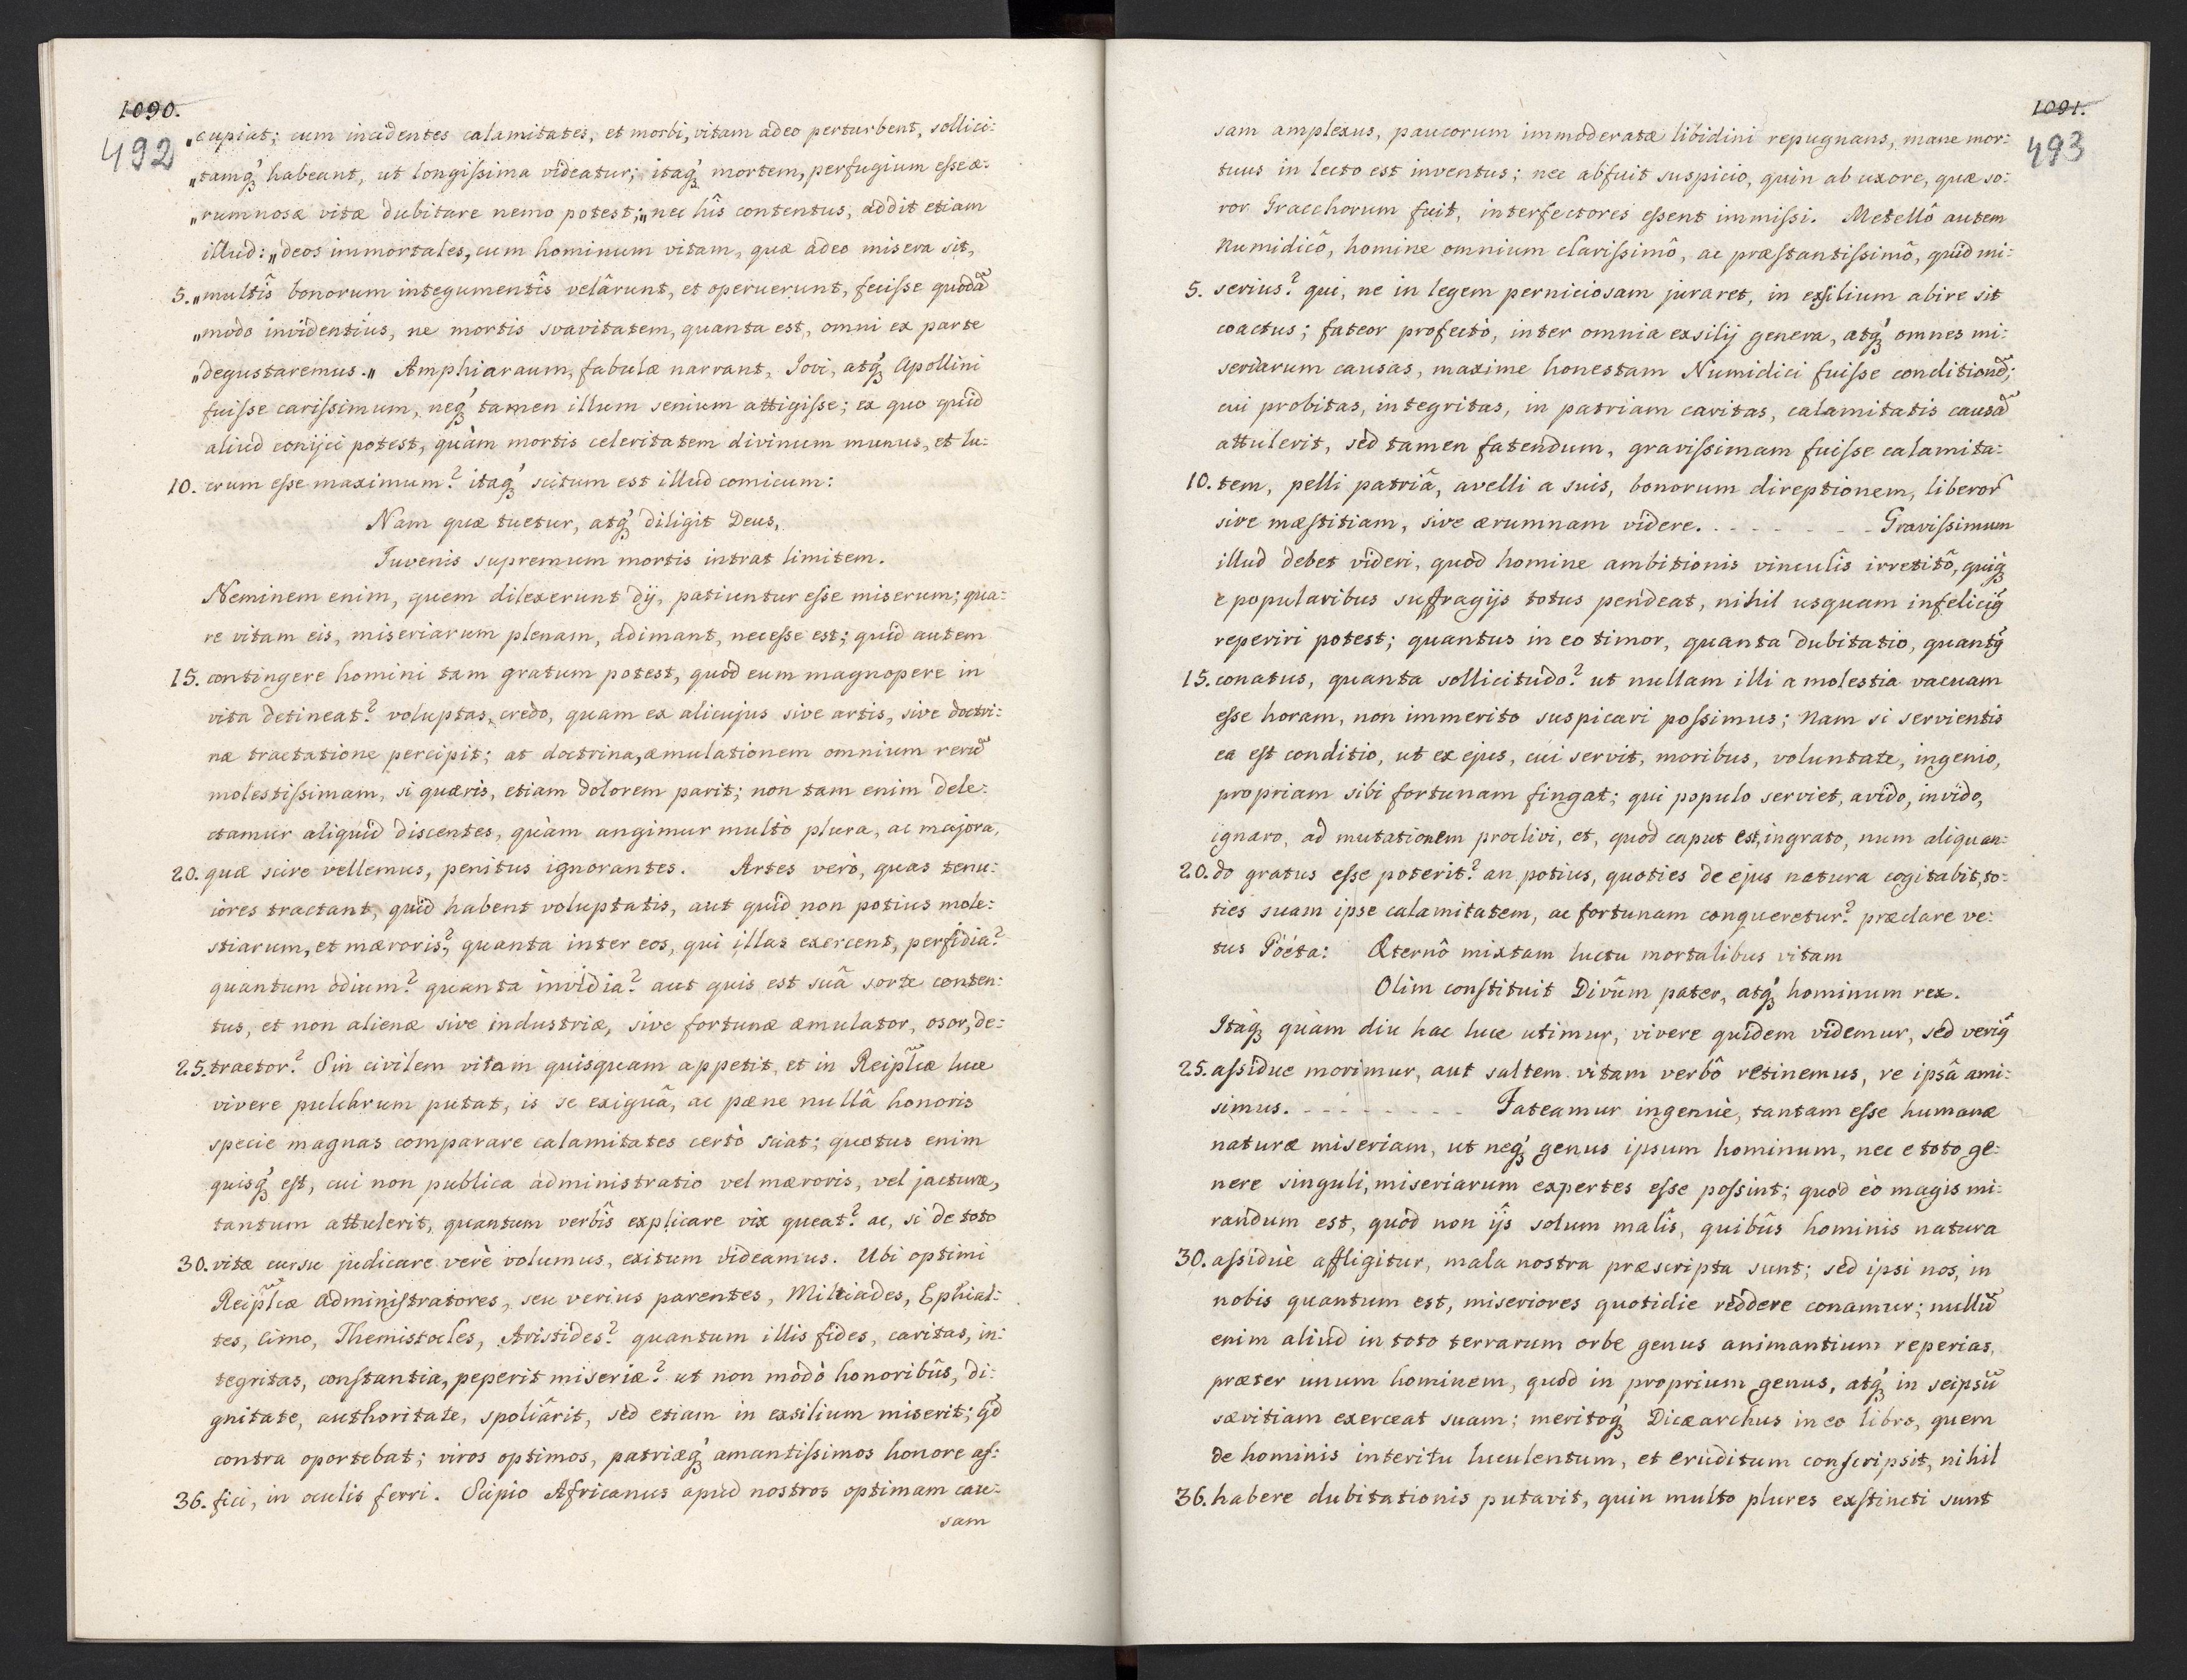 1090.
492
„cupiat; cum incidentes calamitates, et morbi, vitam adeo perturbent, sollici:
„tamq́ꝫ habeant, ut longiſsima videatur; itaq́ꝫ mortem, perfugium eſse æ:
„rumnosæ vitæ dubitare nemo potest;„ nec hîs contentus, addit etiam
illud: „deos immortales, cum hominum vitam, quæ adeo misera sit,
5. „multîs bonorum integumentîs velârunt, et operuerunt, feciſse quodã
„modo invidentiùs, ne mortis svavitatem, quanta est, omni ex parte
„degustaremus.„ Amphiaraum, fabulæ narrant, Iovi, atq́ꝫ Apollini
fuiſse cariſsimum, neq́ꝫ tamen illum senium attigiſse; ex quo quid
aliud conijci potest, quàm mortis celeritatem divinum munus, et lu:
10. crum eſse maximum? itaq́ꝫ scitum est illud comicum:
Nam quæ tuetur, atq́ꝫ diligit Deus,
Iuvenis supremum mortis intrat limitem.
Neminem enim, quem dilexerunt dÿ, patiuntur eſse miserum; qua:
re vitam eis, miseriarum plenam, adimant, neceſse est; quid autem
15. contingere homini tam gratum potest, quod eum magnopere in
vita detineat? voluptas, credo, quam ex alicujus sive artis, sive doctri:
næ tractatione percipit; at doctrina, æmulationem omnium rerũ
molestiſsimam, si quæris, etiam dolorem parit; non tam enim dele:
ctamur aliquid discentes, quàm angimur multò plura, ac majora,
20. quæ scire vellemus, penitus ignorantes. Artes verò, quas tenu:
iores tractant, quid habent voluptatis, aut quid non potius mole:
stiarum, et mæroris? quanta inter eos, qui illas exercent, perfidia?
quantum odium? quanta invidia? aut quis est suâ sorte conten:
tus, et non alienæ sive industriæ, sive fortunæ æmulator, osor, de:
25. tractor? Sin civilem vitam quisquam appetit, et in Reipl̃cæ luce
vivere pulchrum putat, is se exiguâ, ac pæne nullâ honoris
specie magnas comparare calamitates certò sciat; quotus enim
quisq́ꝫ eſt, cui non publica administratio vel mæroris, vel jacturæ,
tantum attulerit, quantum verbîs explicare vix queat? ac, si de toto
30. vitæ cursu judicare verè volumus, exitum videamus. Ubi optimi
Reipl̃cæ adminiſtratores, seu verius parentes, Miltiades, Ephial:
tes, Cimo, Themistocles, Aristides? quantum illis fides, caritas, in:
tegritas, conſtantia, peperit miseriæ? ut non modò honoribûs, di:
gnitate, authoritate, spoliârit, sed etiam in exsilium miserit; qd̃
contra oportebat; viros optimos, patriæq́ꝫ amantiſsimos honore af:
36. fici, in oculis ferri. Scipio Africanus apud nostros optimam cau:
sam
1091.
493
sam amplexus, paucorum immoderatæ libidini repugnans, mane mor:
tuus in lecto est inventus; nec abfuit suspicio, quin ab uxore, quæ so:
ror Gracchorum fuit, interfectores eſsent immiſsi. Metellô autem
Numidicô, homine omnium clariſsimô, ac præſtantiſsimô, quid mi:
5. serius? qui, ne in legem perniciosam juraret, in exsilium abire sit
coactus; fateor profectò, inter omnia exsilij genera, atq́ꝫ omnes mi:
seriarum causas, maxime honestam Numidici fuiſse conditionẽ;
cui probitas, integritas, in patriam caritas, calamitatis causã
attulerit, sed tamen fatendum, graviſsimam fuiſse calamita:
10. tem, pelli patriâ, avelli a suis, bonorum direptionem, liberor̃
sive mæſtitiam, sive ærumnam videre. - - - - - - - Graviſsimum
illud debet videri, quod homine ambitionis vinculîs irretitô, quiq́ꝫ
e popularibus suffragijs totus pendeat, nihil usquam infeliciꝰ
reperiri potest; quantus in eo timor, quanta dubitatio, quantꝰ
15. conatus, quanta sollicitudo? ut nullam illi a molestia vacuam
eſse horam, non immerito suspicari poſsimus; Nam si servientis
ea eſt conditio, ut ex ejus, cui servit, moribus, voluntate, ingenio,
propriam sibi fortunam fingat; qui populo serviet, avido, invido,
ignaro, ad mutationem proclivi, et, quod caput est, ingrato, num aliquan:
20. do gratus eſse poterit? an potius, quoties de ejus natura cogitabit, to:
ties suam ipse calamitatem, ac fortunam conqueretur? præclare ve:
tus Poëta: Æternô mixtam luctu mortalibus vitam
Olim conſtituit Divûm pater, atq́ꝫ hominum rex.
Itaq́ꝫ quàm diu hac luce utimur, vivere quidem videmur, sed veriꝰ
25. aſsidue morimur, aut saltem vitam verbô retinemus, re ipsâ ami:
simus. - - - - - - - - Fateamur ingenuè, tantam eſse humanæ
naturæ miseriam, ut neq́ꝫ genus ipsum hominum, nec e toto ge:
nere singuli, miseriarum expertes eſse poſsint; quod eò magis mi:
randum est, quòd non ijs solum malîs, quibûs hominis natura
30. aſsiduè affligitur, mala nostra præscripta sunt; sed ipsi nos, in
nobis quantum est, miseriores quotidie reddere conamur; nullũ
enim aliud in toto terrarum orbe genus animantium reperias,
præter unum hominem, quod in proprium genus, atq́ꝫ in seipsũ
sævitiam exerceat suam; meritoq́ꝫ Dicæarchus in eo libro, quem
de hominis interitu luculentum, et eruditum conſcripsit, nihil
36. habere dubitationis putavit, quin multo plures exſtincti sunt